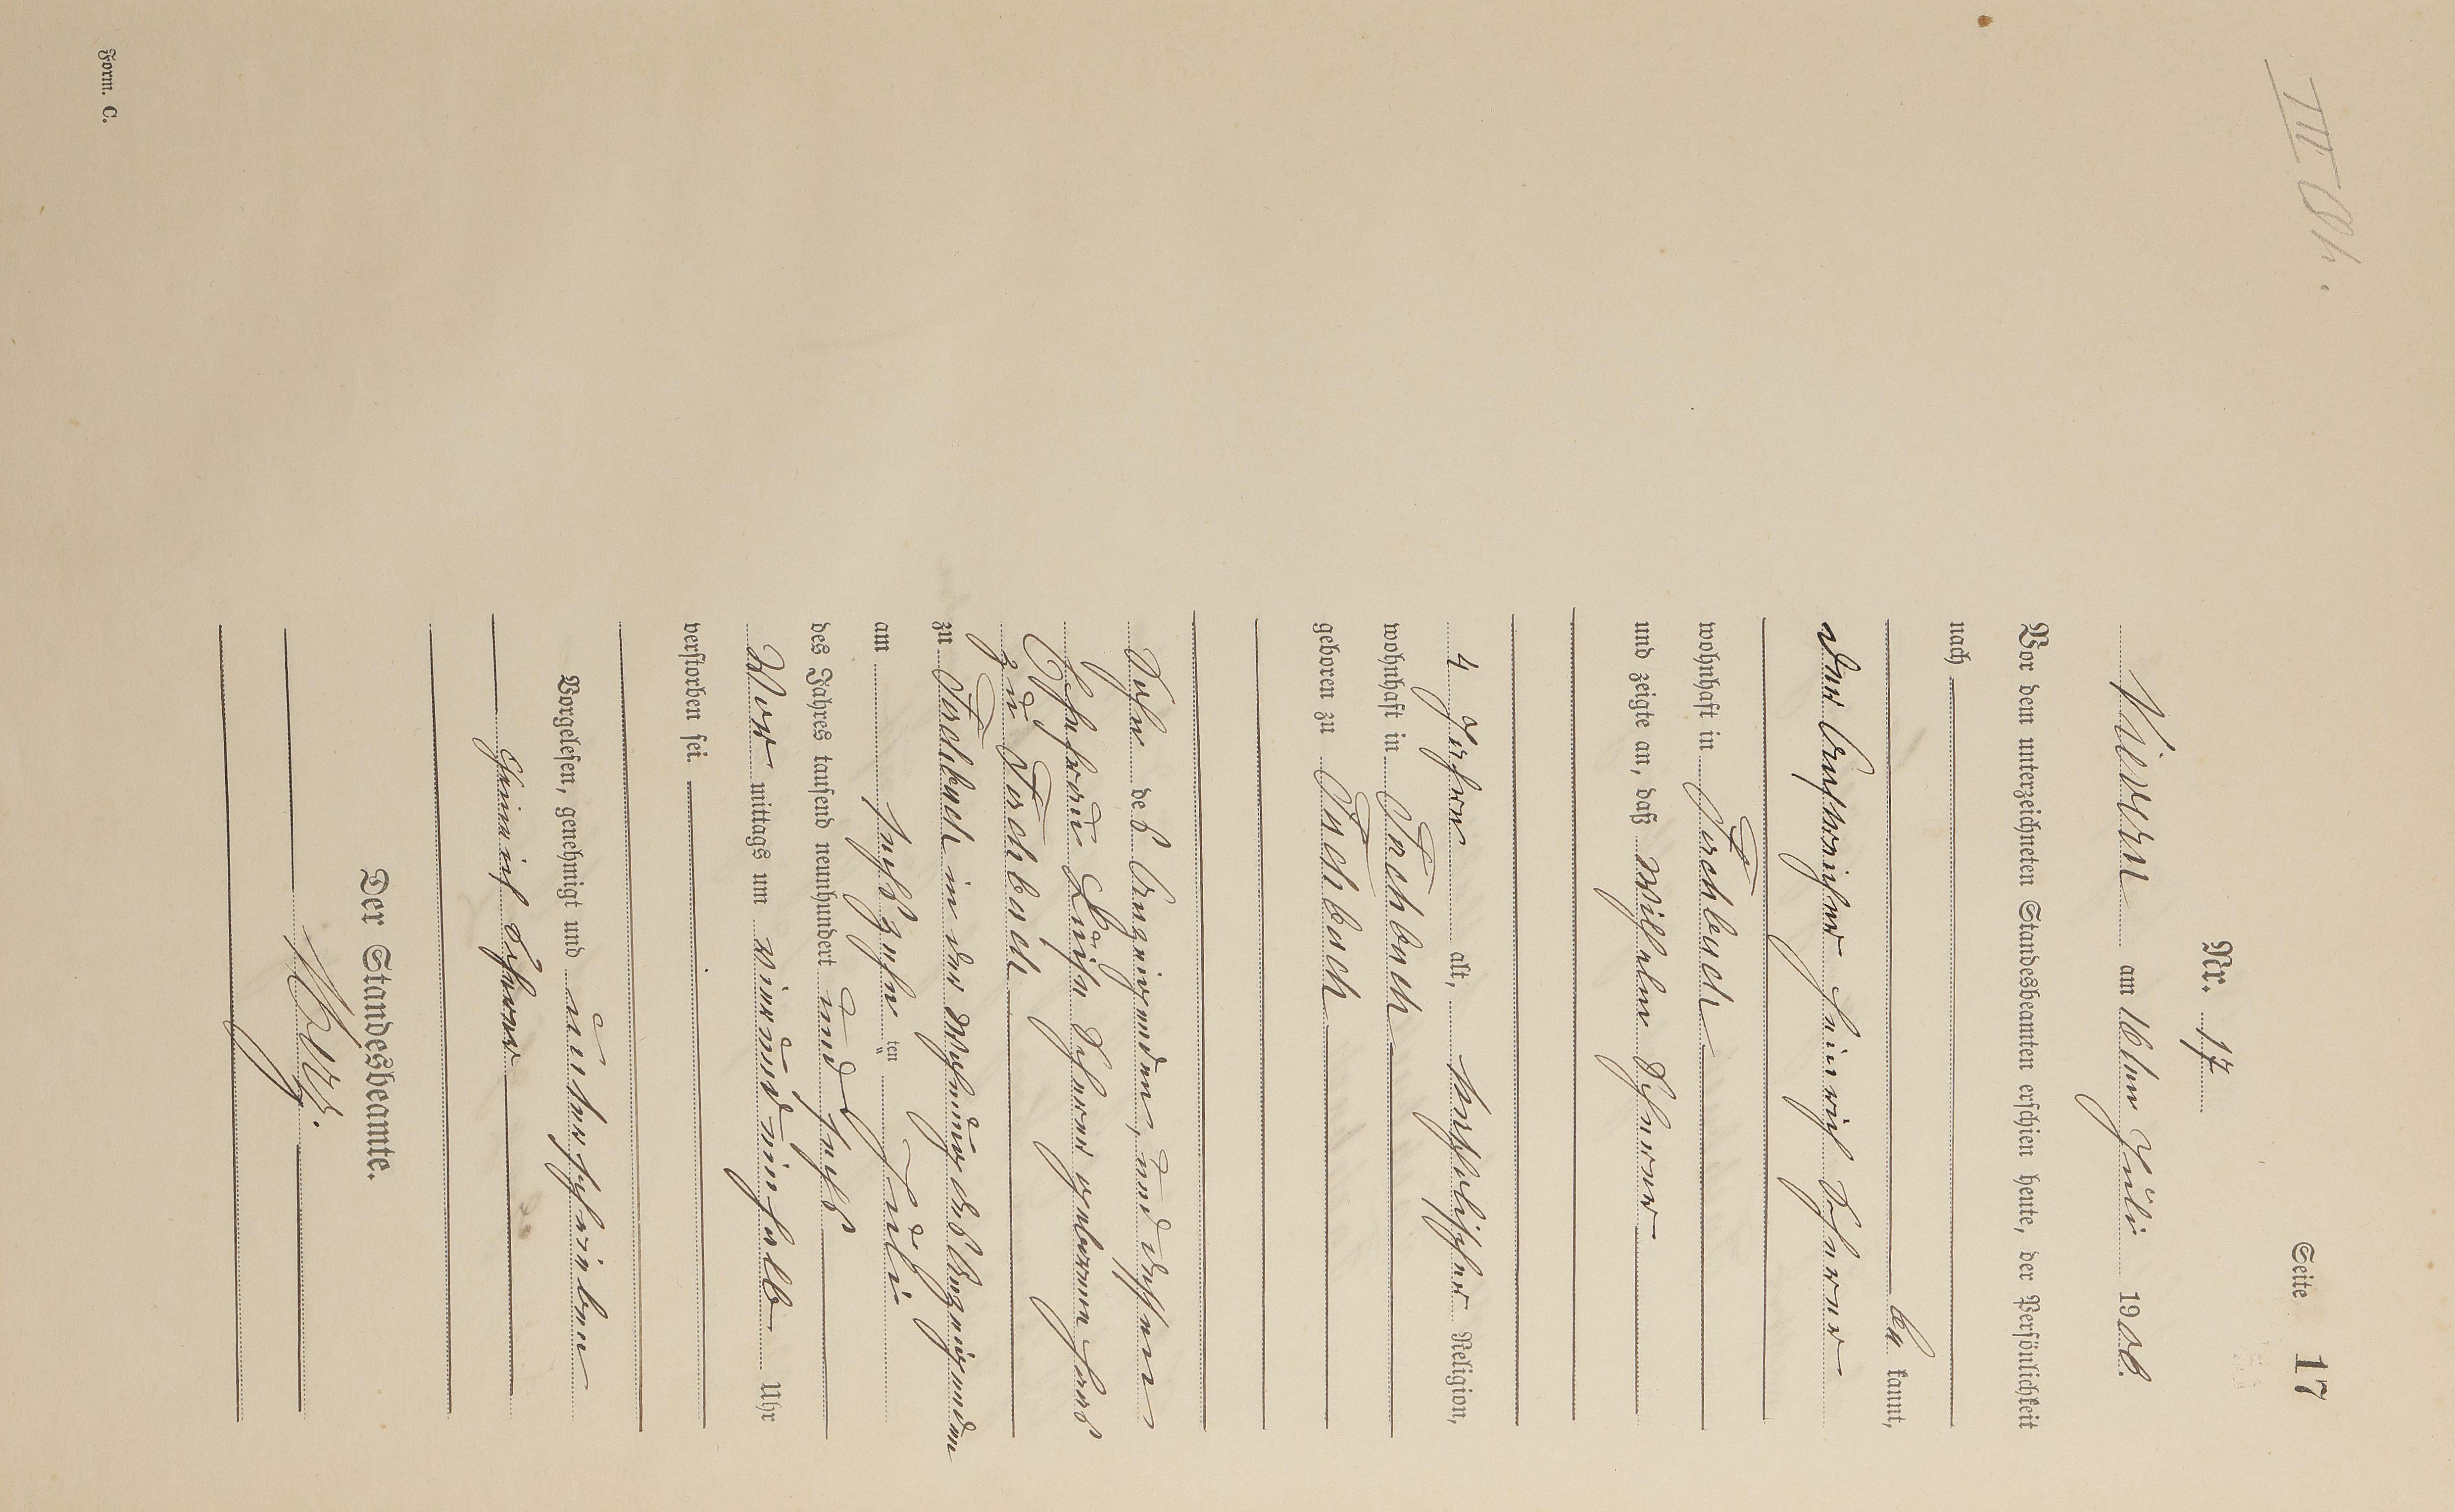 III Qu.
Seite 17
Nr. 17
Nievern am 16ten Juli 1906.
Vor dem unterzeichneten Standesbeamten erschien heute, der Persönlichkeit
nach
be kannt,
der Anstreicher Heinrich Scherer
wohnhaft in Fachbach
und zeigte an, daß Wilhelm Scherer
4 Jahre alt, katholischer Religion,
wohnhaft in Fachbach
geboren zu Fachbach
Sohn des Anzeigenden, und dessen
Ehefrau Luise Scherer geborenen
zu Fachbach
zu Fachbach in der Wohnung des Anzeigenden
am sechszehn ten Juli
des Jahres tausend neunhundert und sechs
Vor mittags um vier und einhalb Uhr
verstorben sei.
Vorgelesen, genehmigt und unterschrieben
Heinrich Scherer
Der Standesbeamte.
Form. C.